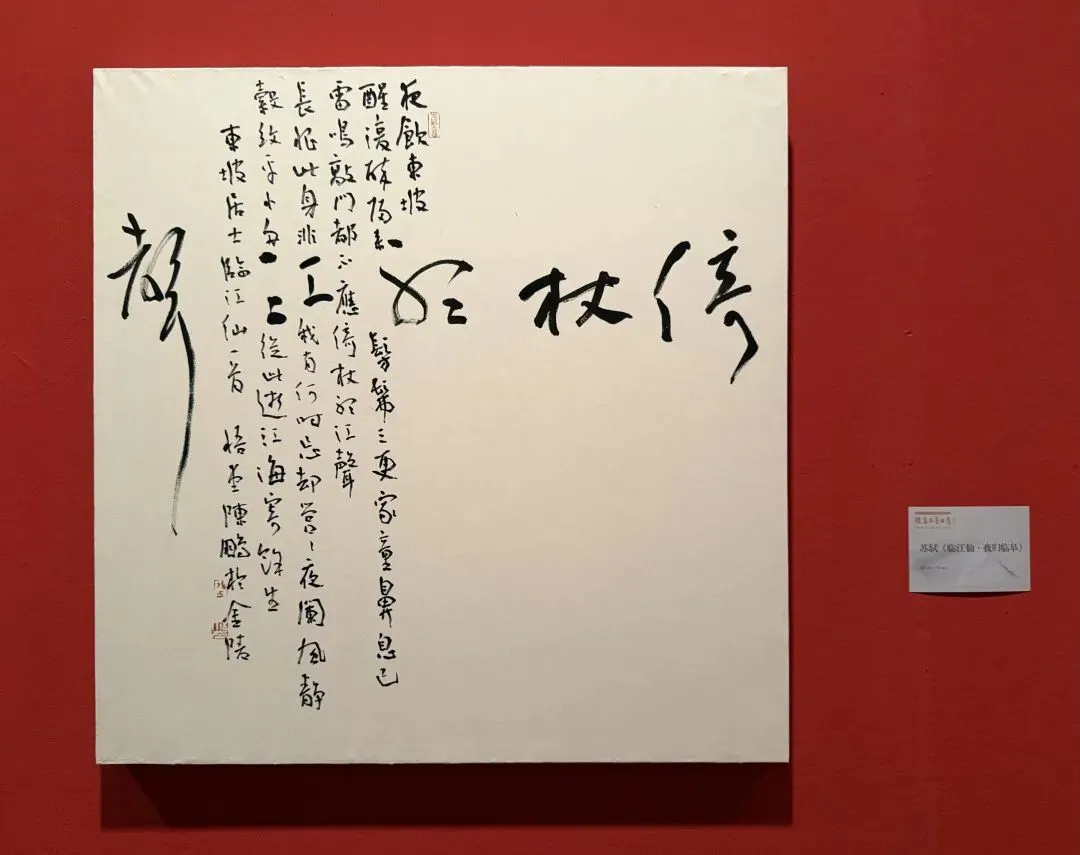 倚杖听江聲
夜飲東坡
醒復醉歸來髣髴三更家童鼻息已
雷鳴敲門都不應倚杖听江聲
長恨此身非我有何時忘却營〻夜闌風靜
縠紋平小舟從此逝江海寄餘生
東坡居士臨江仙一首 悟堂陳鵬於金陵
苏轼《临江仙·夜归临皋》